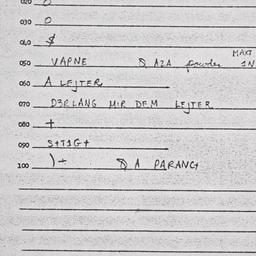 020 0
030 0
040 $
MAKT
050 VAPNE & AZA powder IN
060 A LEJTER
070 D3R LANG MIR DEM LEJTER
080 +
090 S+T1G+
100 )+ & A PARANG+